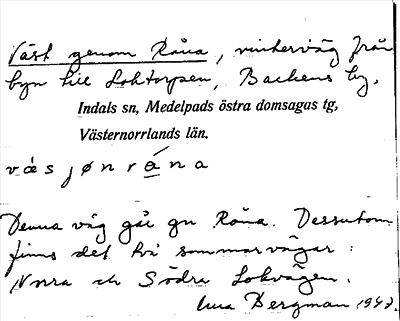 Väst genom Råna, vinterväg från
byn till Loktorpsen, Backens by.
Indals sn, Medelpads östra domsagas tg,
Västernorrlands län.
væsjønrána
Denna väg går gn Råna. Dessutom
finns det två sommarvägar:
Norra och Södra Lokvägen.
Bergman 1947.